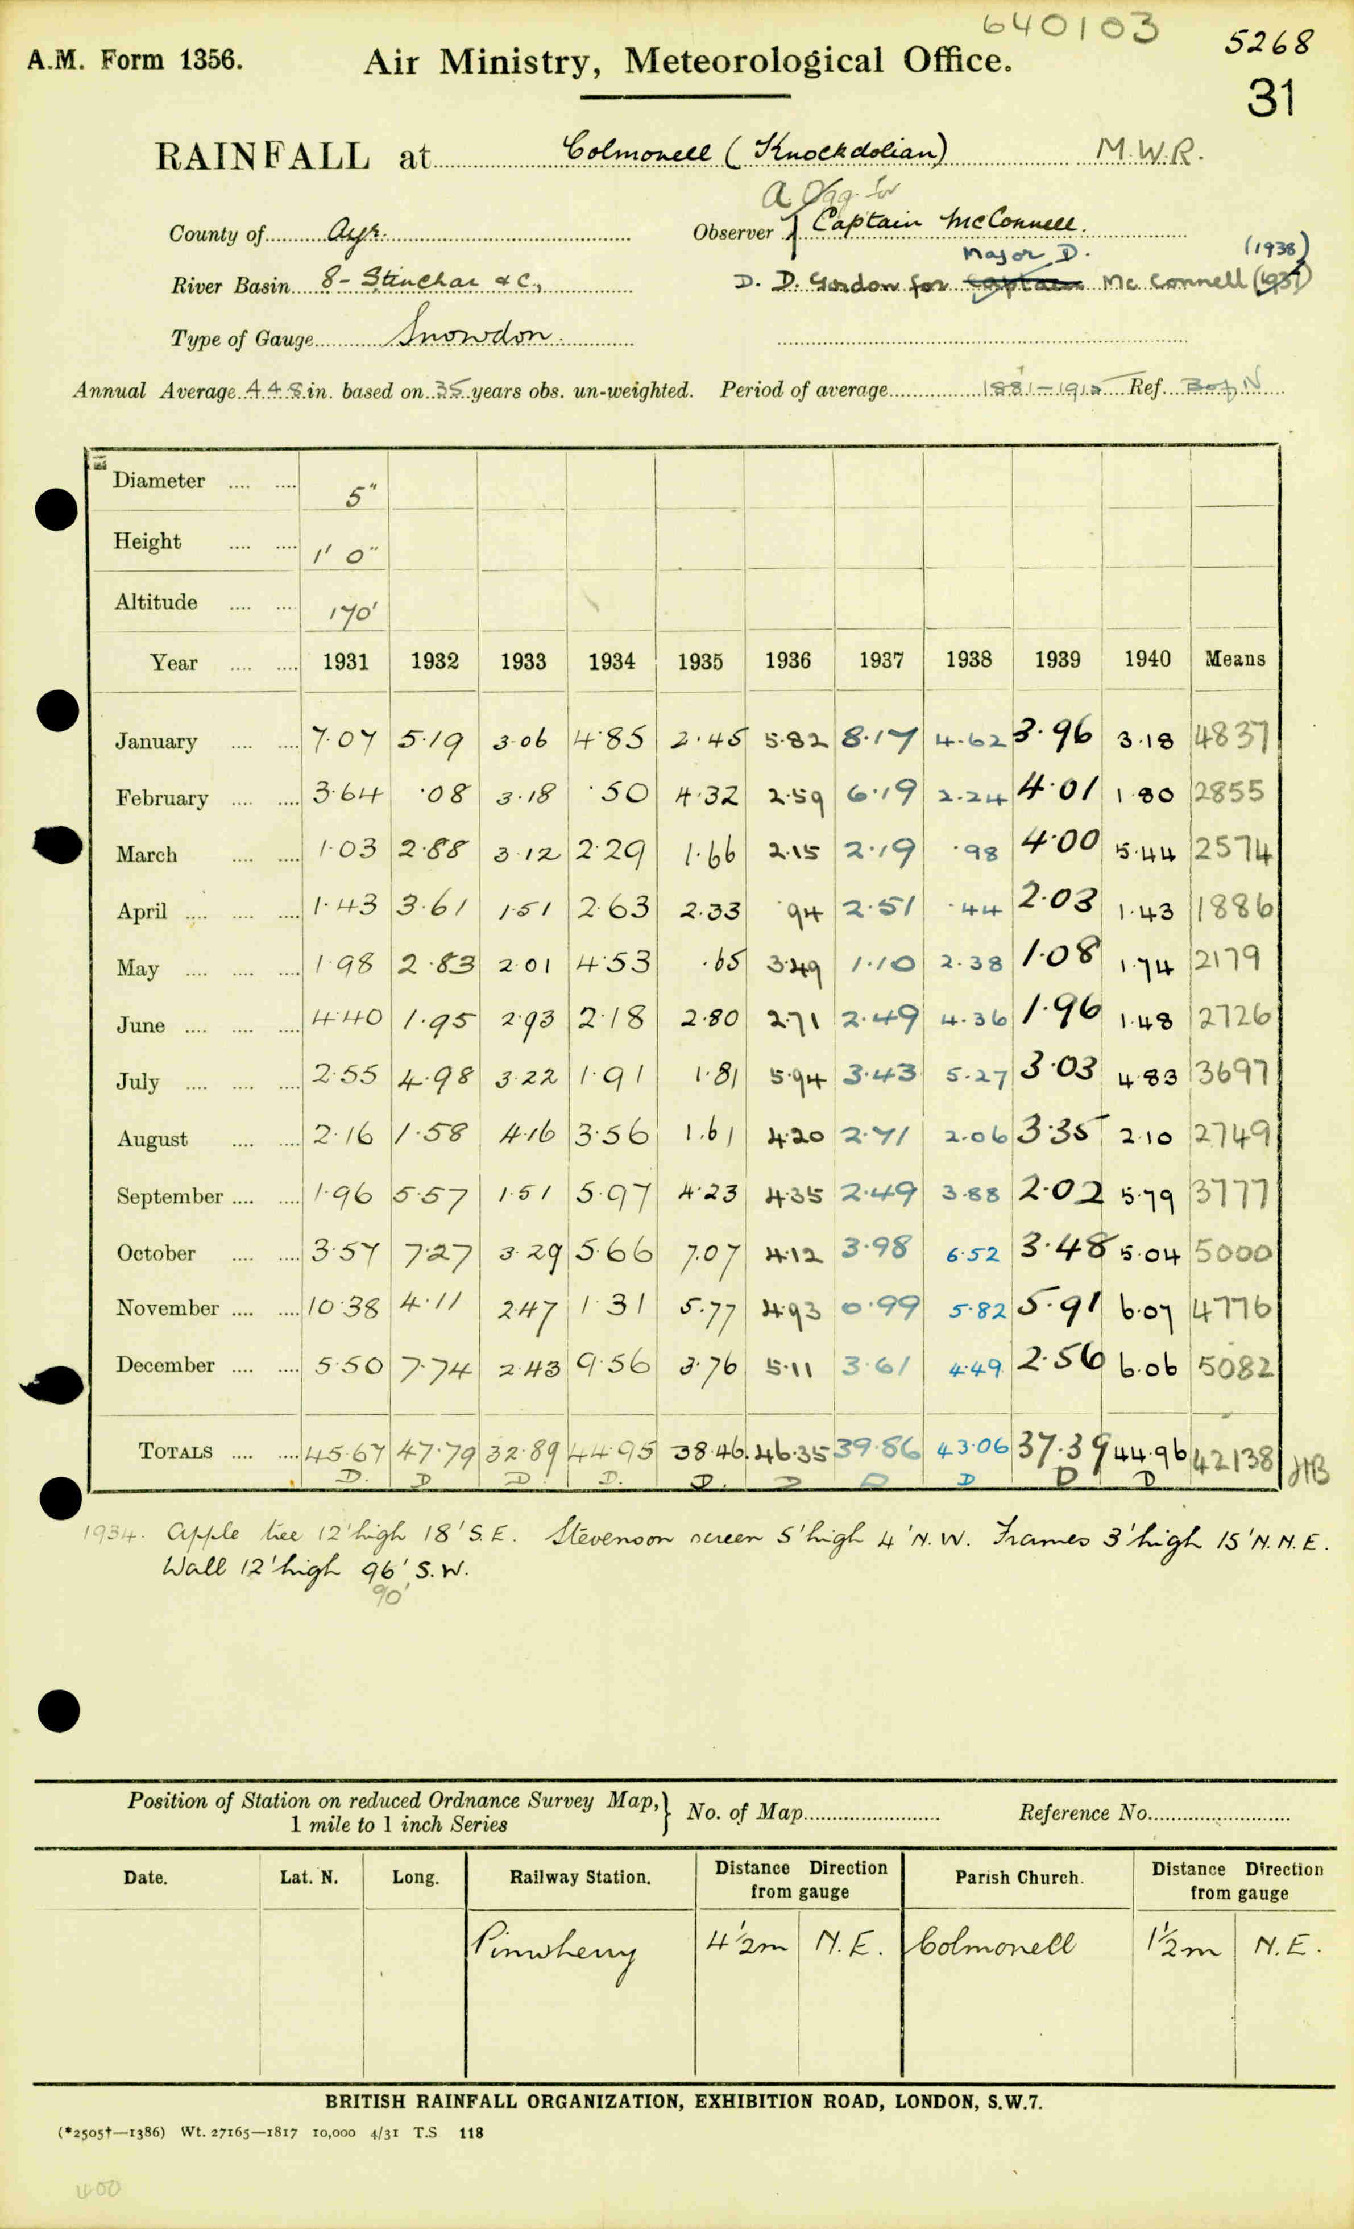 640103
5268
A.M. Form 1356. Air Ministry, Meteorological Office.
31
RAINFALL at Colmonell (Knockdolian) M.W.R.
A Ogg for
County of Ayr. Observer Captain McConnell.
Major D. (1938)
River Basin 8 - Stinchar & C, D. D. Gordon for Captain Mc Connell (1937)
Type of Gauge Snowdon
Annual Average 44.8 in. based on 35 years obs. un-weighted. Period of average 1881-1915 Ref. B of N
Diameter .... .... 5"
Height .... .... 1' 0"
Altitude .... .... 170'
Year .... .... 1931 1932 1933 1934 1935 1936 1937 1938 1939 1940 Means
January .... .... 7.07 5.19 3.06 4.85 2.45 5.82 8.17 4.62 3.96 3.18 4837
February .... .... 3.64 .08 3.18 .50 4.32 2.59 6.19 2.24 4.01 1.80 2855
March .... .... 1.03 2.88 3.12 2.29 1.66 2.15 2.19 .98 4.00 5.44 2574
April .... .... .... 1.43 3.61 1.51 2.63 2.33 .94 2.51 .44 2.03 1.43 1886
May .... .... .... 1.98 2.83 2.01 4.53 .65 3.49 1.10 2.38 1.08 1.74 2179
June .... .... .... 4.40 1.95 2.93 2.18 2.80 2.71 2.49 4.36 1.96 1.48 2726
July .... .... .... 2.55 4.98 3.22 1.91 1.81 5.94 3.43 5.27 3.03 4.83 3697
August .... .... 2.16 1.58 4.16 3.56 1.61 4.20 2.71 2.06 3.35 2.10 2749
September .... .... 1.96 5.57 1.51 5.97 4.23 4.35 2.49 3.88 2.02 5.79 3777
October .... .... 3.57 7.27 3.29 5.66 7.07 4.12 3.98 6.52 3.48 5.04 5000
November .... .... 10.38 4.11 2.47 1.31 5.77 4.93 0.99 5.82 5.91 6.07 4776
December .... .... 5.50 7.74 2.43 9.56 3.76 5.11 3.61 4.49 2.56 6.06 5082
TOTALS .... .... 45.67 47.79 32.89 44.95 38.46 46.35 39.86 43.06 37.39 44.96 42138 HB
D. D D. D. D. D D D D D
1934. Apple tree 12' high 18' S.E. Stevenson screen 5' high 4' N.W. Frames 3' high 15' N.N.E.
Wall 12' high 96' S.W.
90'
Position of Station on reduced Ordnance Survey Map,} No. of Map Reference No.
1 mile to 1 inch Series
Date. Lat. N. Long. Railway Station. Distance Direction from gauge Parish Church. Distance Direction from gauge
Pinwherry 4½m N.E. Colmonell 1½m N.E.
BRITISH RAINFALL ORGANIZATION, EXHIBITION ROAD, LONDON, S.W.7.
(*2505†—1386) Wt. 27165—1817 10,000 4/31 T.S 118
400